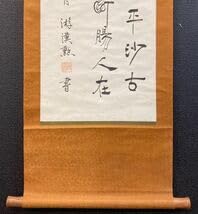 平沙古
勝人在
游漢勲 書